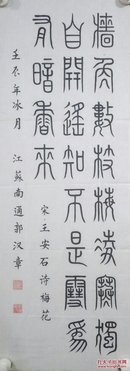 墙角数枝梅凌寒独
自开遥知不是雪为
有暗香来
宋·王安石诗梅花
壬辰年冰月 江苏南通郭汉章